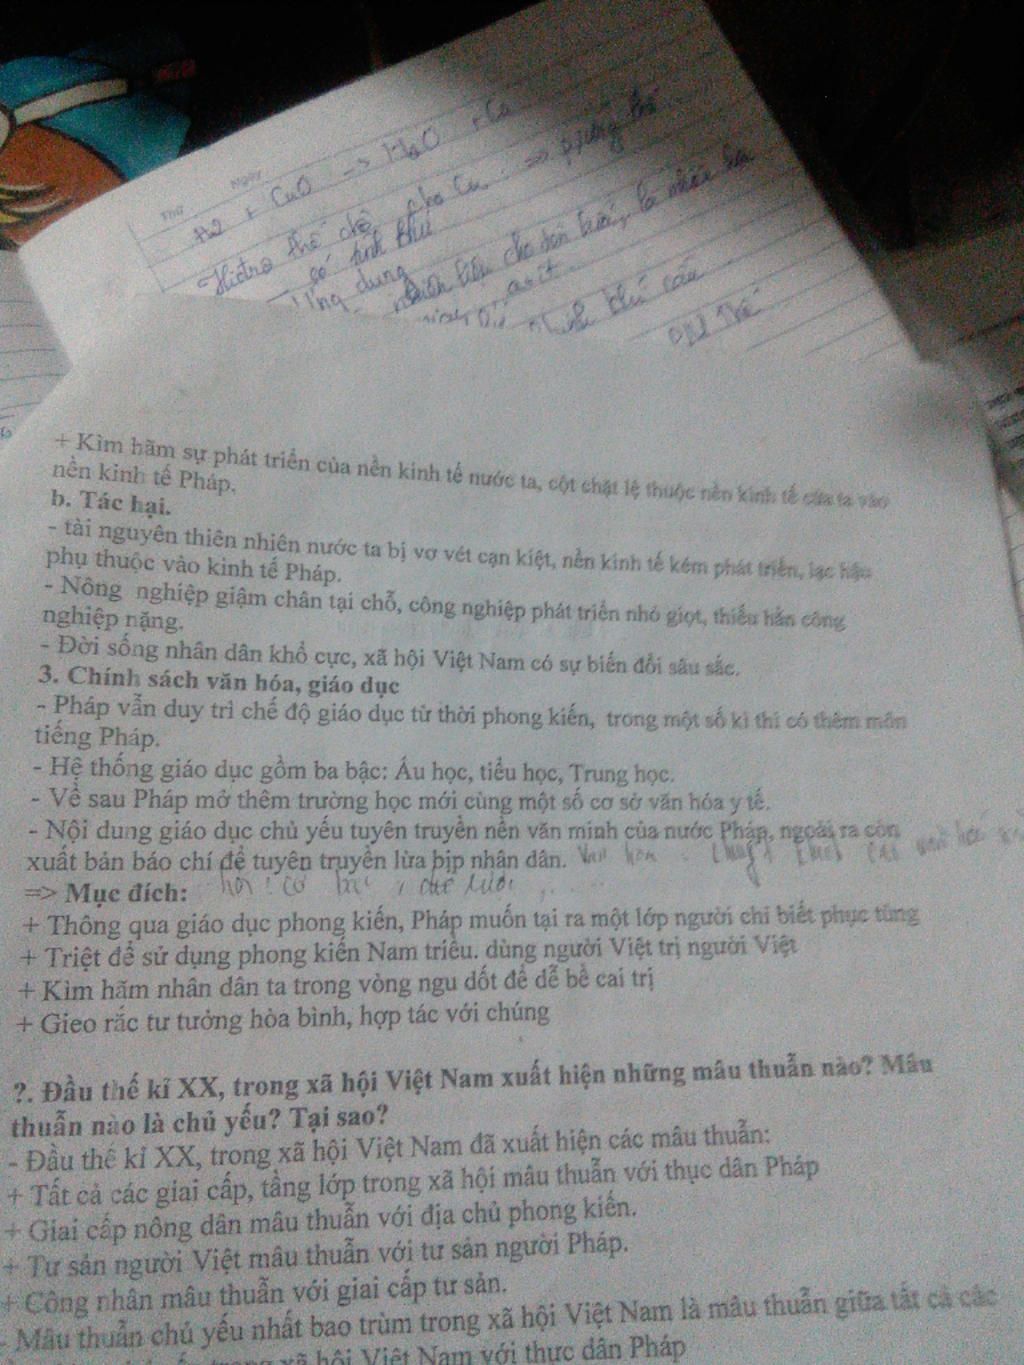 Thứ
Ngày
H2 + CuO -> H2O + Cu
Hiđro thế chỗ cho Cu => phản
có tính khử
Ứng dụng
+ Kìm hãm sự phát triển của nền kinh tế nước ta, cột chặt lệ thuộc nền kinh tế của ta vào
nền kinh tế Pháp.
b. Tác hại.
- tài nguyên thiên nhiên nước ta bị vơ vét cạn kiệt, nền kinh tế kém phát triển, lạc hậu
phụ thuộc vào kinh tế Pháp.
- Nông nghiệp giậm chân tại chỗ, công nghiệp phát triển nhỏ giọt, thiếu hẳn công
nghiệp nặng.
- Đời sống nhân dân khổ cực, xã hội Việt Nam có sự biến đổi sâu sắc.
3. Chính sách văn hóa, giáo dục
- Pháp vẫn duy trì chế độ giáo dục từ thời phong kiến, trong một số kì thi có thêm môn
tiếng Pháp.
- Hệ thống giáo dục gồm ba bậc: Ấu học, tiểu học, Trung học.
- Về sau Pháp mở thêm trường học mới cùng một số cơ sở văn hóa y tế.
- Nội dung giáo dục chủ yếu tuyên truyền nền văn minh của nước Pháp, ngoài ra còn
xuất bản báo chí để tuyên truyền lừa bịp nhân dân.
=> Mục đích:
+ Thông qua giáo dục phong kiến, Pháp muốn tại ra một lớp người chỉ biết phục tùng
+ Triệt để sử dụng phong kiến Nam triều. dùng người Việt trị người Việt
+ Kìm hãm nhân dân ta trong vòng ngu dốt để dễ bề cai trị
+ Gieo rắc tư tưởng hòa bình, hợp tác với chúng
?. Đầu thế kỉ XX, trong xã hội Việt Nam xuất hiện những mâu thuẫn nào? Mâu
thuẫn nào là chủ yếu? Tại sao?
- Đầu thế kỉ XX, trong xã hội Việt Nam đã xuất hiện các mâu thuẫn:
+ Tất cả các giai cấp, tầng lớp trong xã hội mâu thuẫn với thục dân Pháp
+ Giai cấp nông dân mâu thuẫn với địa chủ phong kiến.
+ Tư sản người Việt mâu thuẫn với tư sản người Pháp.
+ Công nhân mâu thuẫn với giai cấp tư sản.
- Mâu thuẫn chủ yếu nhất bao trùm trong xã hội Việt Nam là mâu thuẫn giữa tất cả các
trong xã hội Việt Nam với thực dân Pháp